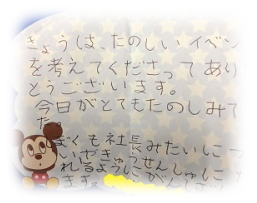 きょうは、たのしいイベン
を考えてくださってあり
とうございます。
今日がとてもたのしみで
た。
ぼくも社長みたいにつ
いやきゅうせんしゅに
れるようにがんばり
ます。